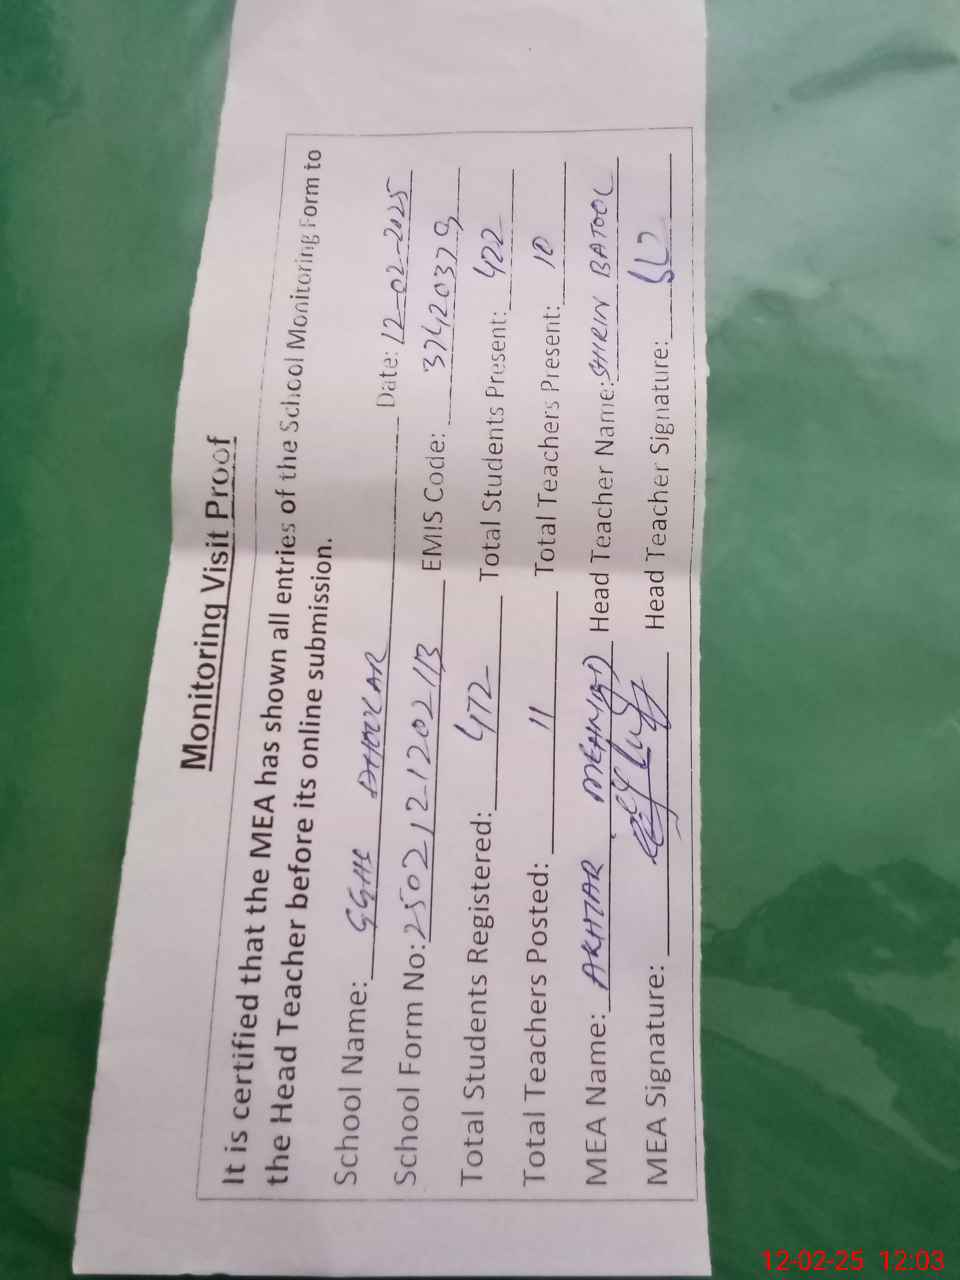 Monitoring Visit Proof
It is certified that the MEA has shown all entries of the School Monitoring Form to
the Head Teacher before its online submission.
School Name: GGHS DHOULAR Date: 12-02-2025
School Form No: 2502121202113 EMIS Code: 37420379
Total Students Registered: 472 Total Students Present: 422
Total Teachers Posted: 11 Total Teachers Present: 10
MEA Name: AKHTAR MEHMOOD Head Teacher Name: SHIRIN BATOOL
MEA Signature: Head Teacher Signature:
12-02-25 12:03